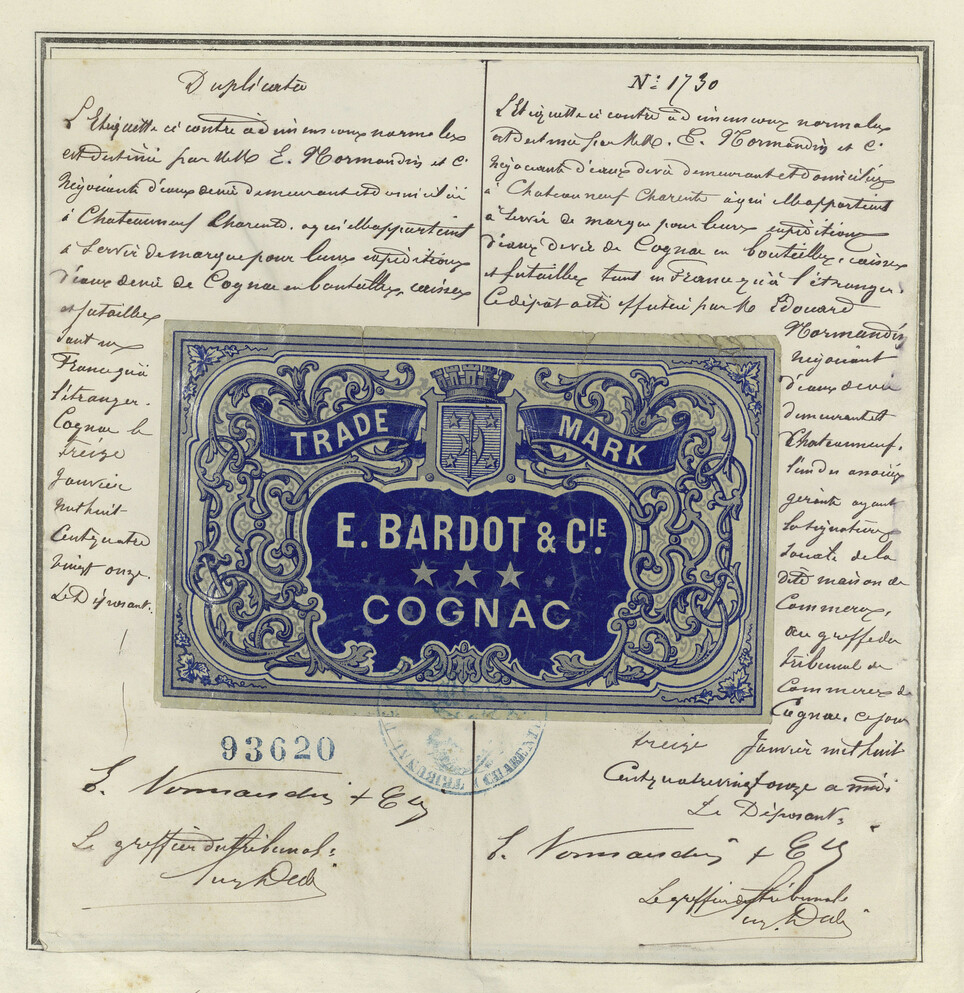 Duplicata
L'Etiquette ci contre à dimensions normales
est destinée par MM. E. Normandin et Cie
Négociants d'eaux devie demeurant et domicilié
à Chateauneuf Charente, à qui elle appartient
à servir de marque pour leurs expéditions
d'eaux devie de Cognac en bouteilles, caisses
et futailles
tant en
France qu'à
l'étranger.
Cognac le
Treize
Janvier
mil huit
Cent quatre
Vingt onze.
Le Déposant:
93620
E. Normandin & Cie
Le greffier du tribunal:
N° 1730
L'Etiquette ci contre à dimensions normales
est destinée par MM. E. Normandin et Cie
Négociants d'eaux devie demeurant et domiciliés
à Chateauneuf Charente à qui elle appartient
à servir de marque pour leurs expéditions
d'eaux devie de Cognac en bouteilles, caisses
et futailles tant en France qu'à l'étranger.
Ce dépôt a été effectué par M. Edouard
Normandin
négociant
d'eaux devie
demeurant et
Chateauneuf,
l'un des associés
gérants ayant
la signature
sociale de la
dite maison de
Commerce,
au greffe du
tribunal de
Commerce de
Cognac, ce jour
treize Janvier mil huit
Cent quatre vingt onze a midi
Le Déposant:
E. Normandin & Cie
Le greffier du tribunal:
TRADE MARK
E. BARDOT & CIE.
★ ★ ★
COGNAC